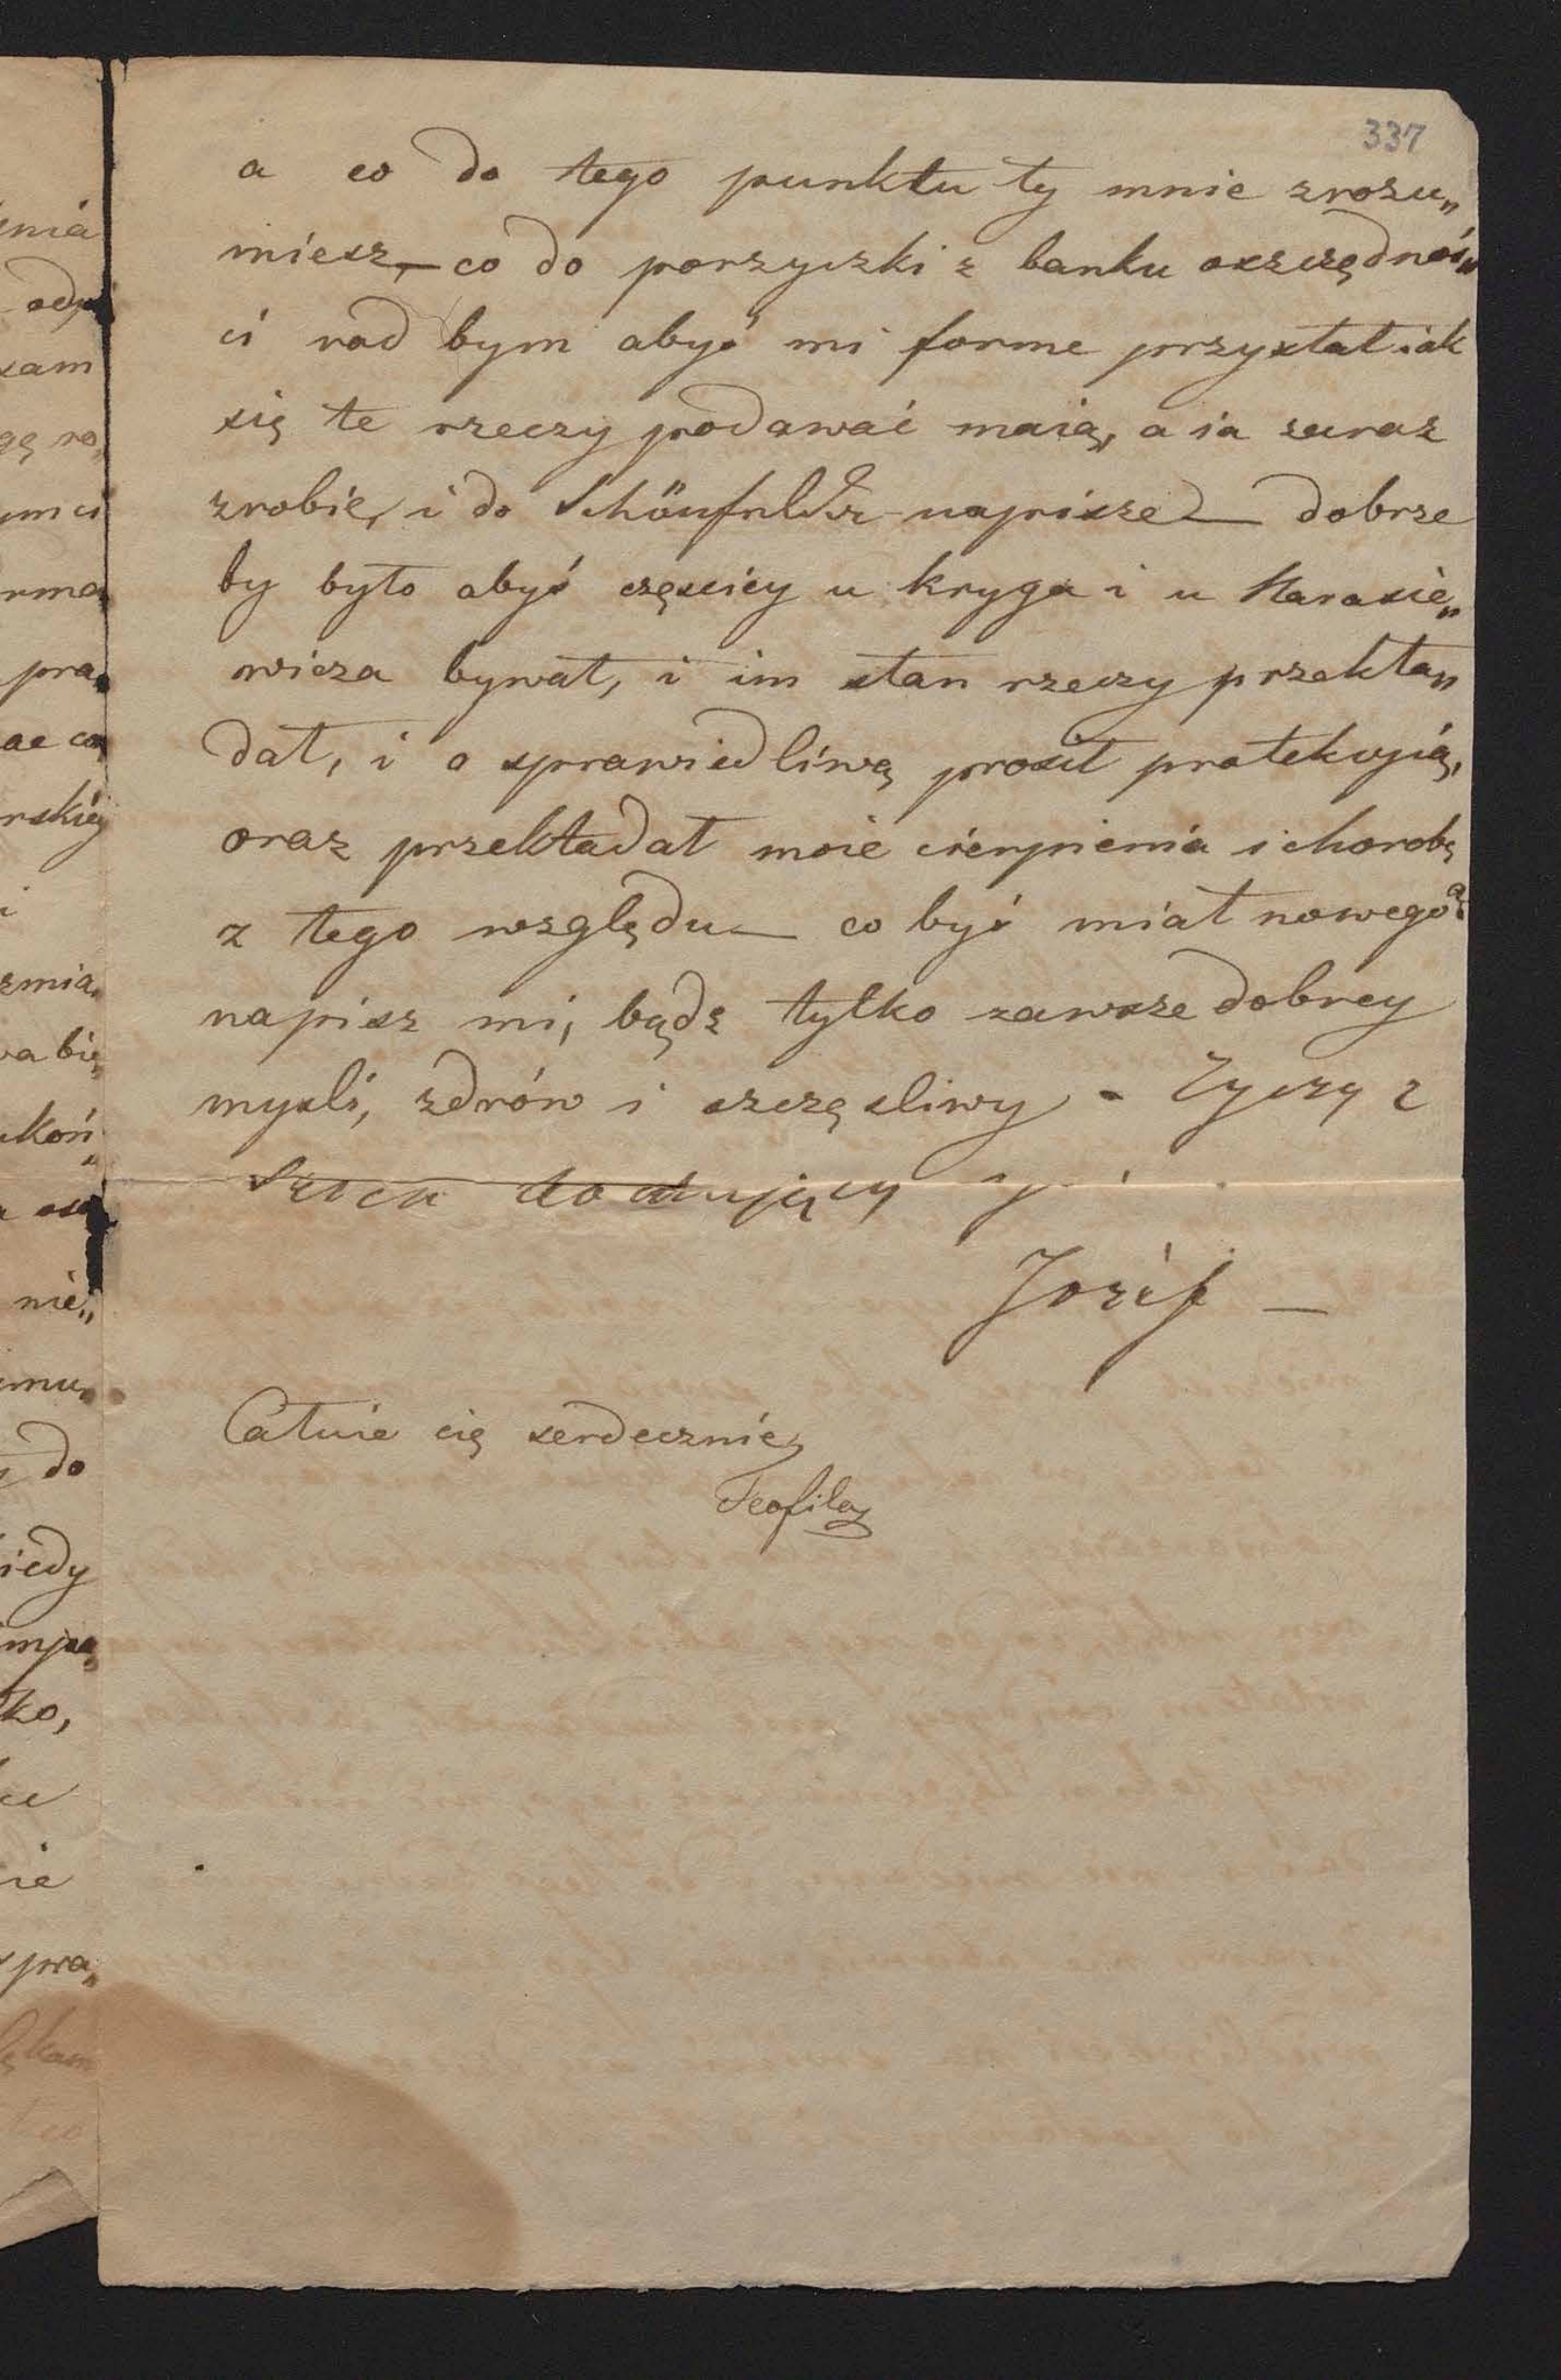 337
a co do tego punktu ty mnie zrozu„
miesz, — co do porzyczki z banku oszczędnoś„
ci rad bym abyś mi forme przysłał iak
się te rzeczy podawać maią, a ia zaraz
zrobię, i do napisze — dobrze
by było abyś częściey u kryga i u Harasie„
wicza bywał, i im stan rzeczy przekła„
dał, i o sprawiedliwą prosił protekcyią,
oraz przekładał moie cierpienia i chorobę
z tego względu — co byś miał nowego
napisz mi, bądz tylko zawsze dobrey
mysli, zdrów i szczęsliwy - Zyczy z
serca
Jozéf —
Całuie cię serdecznie
Teofila
nia
sam
pra„
rskiéy
i
zmia„
nie„
do
pra„